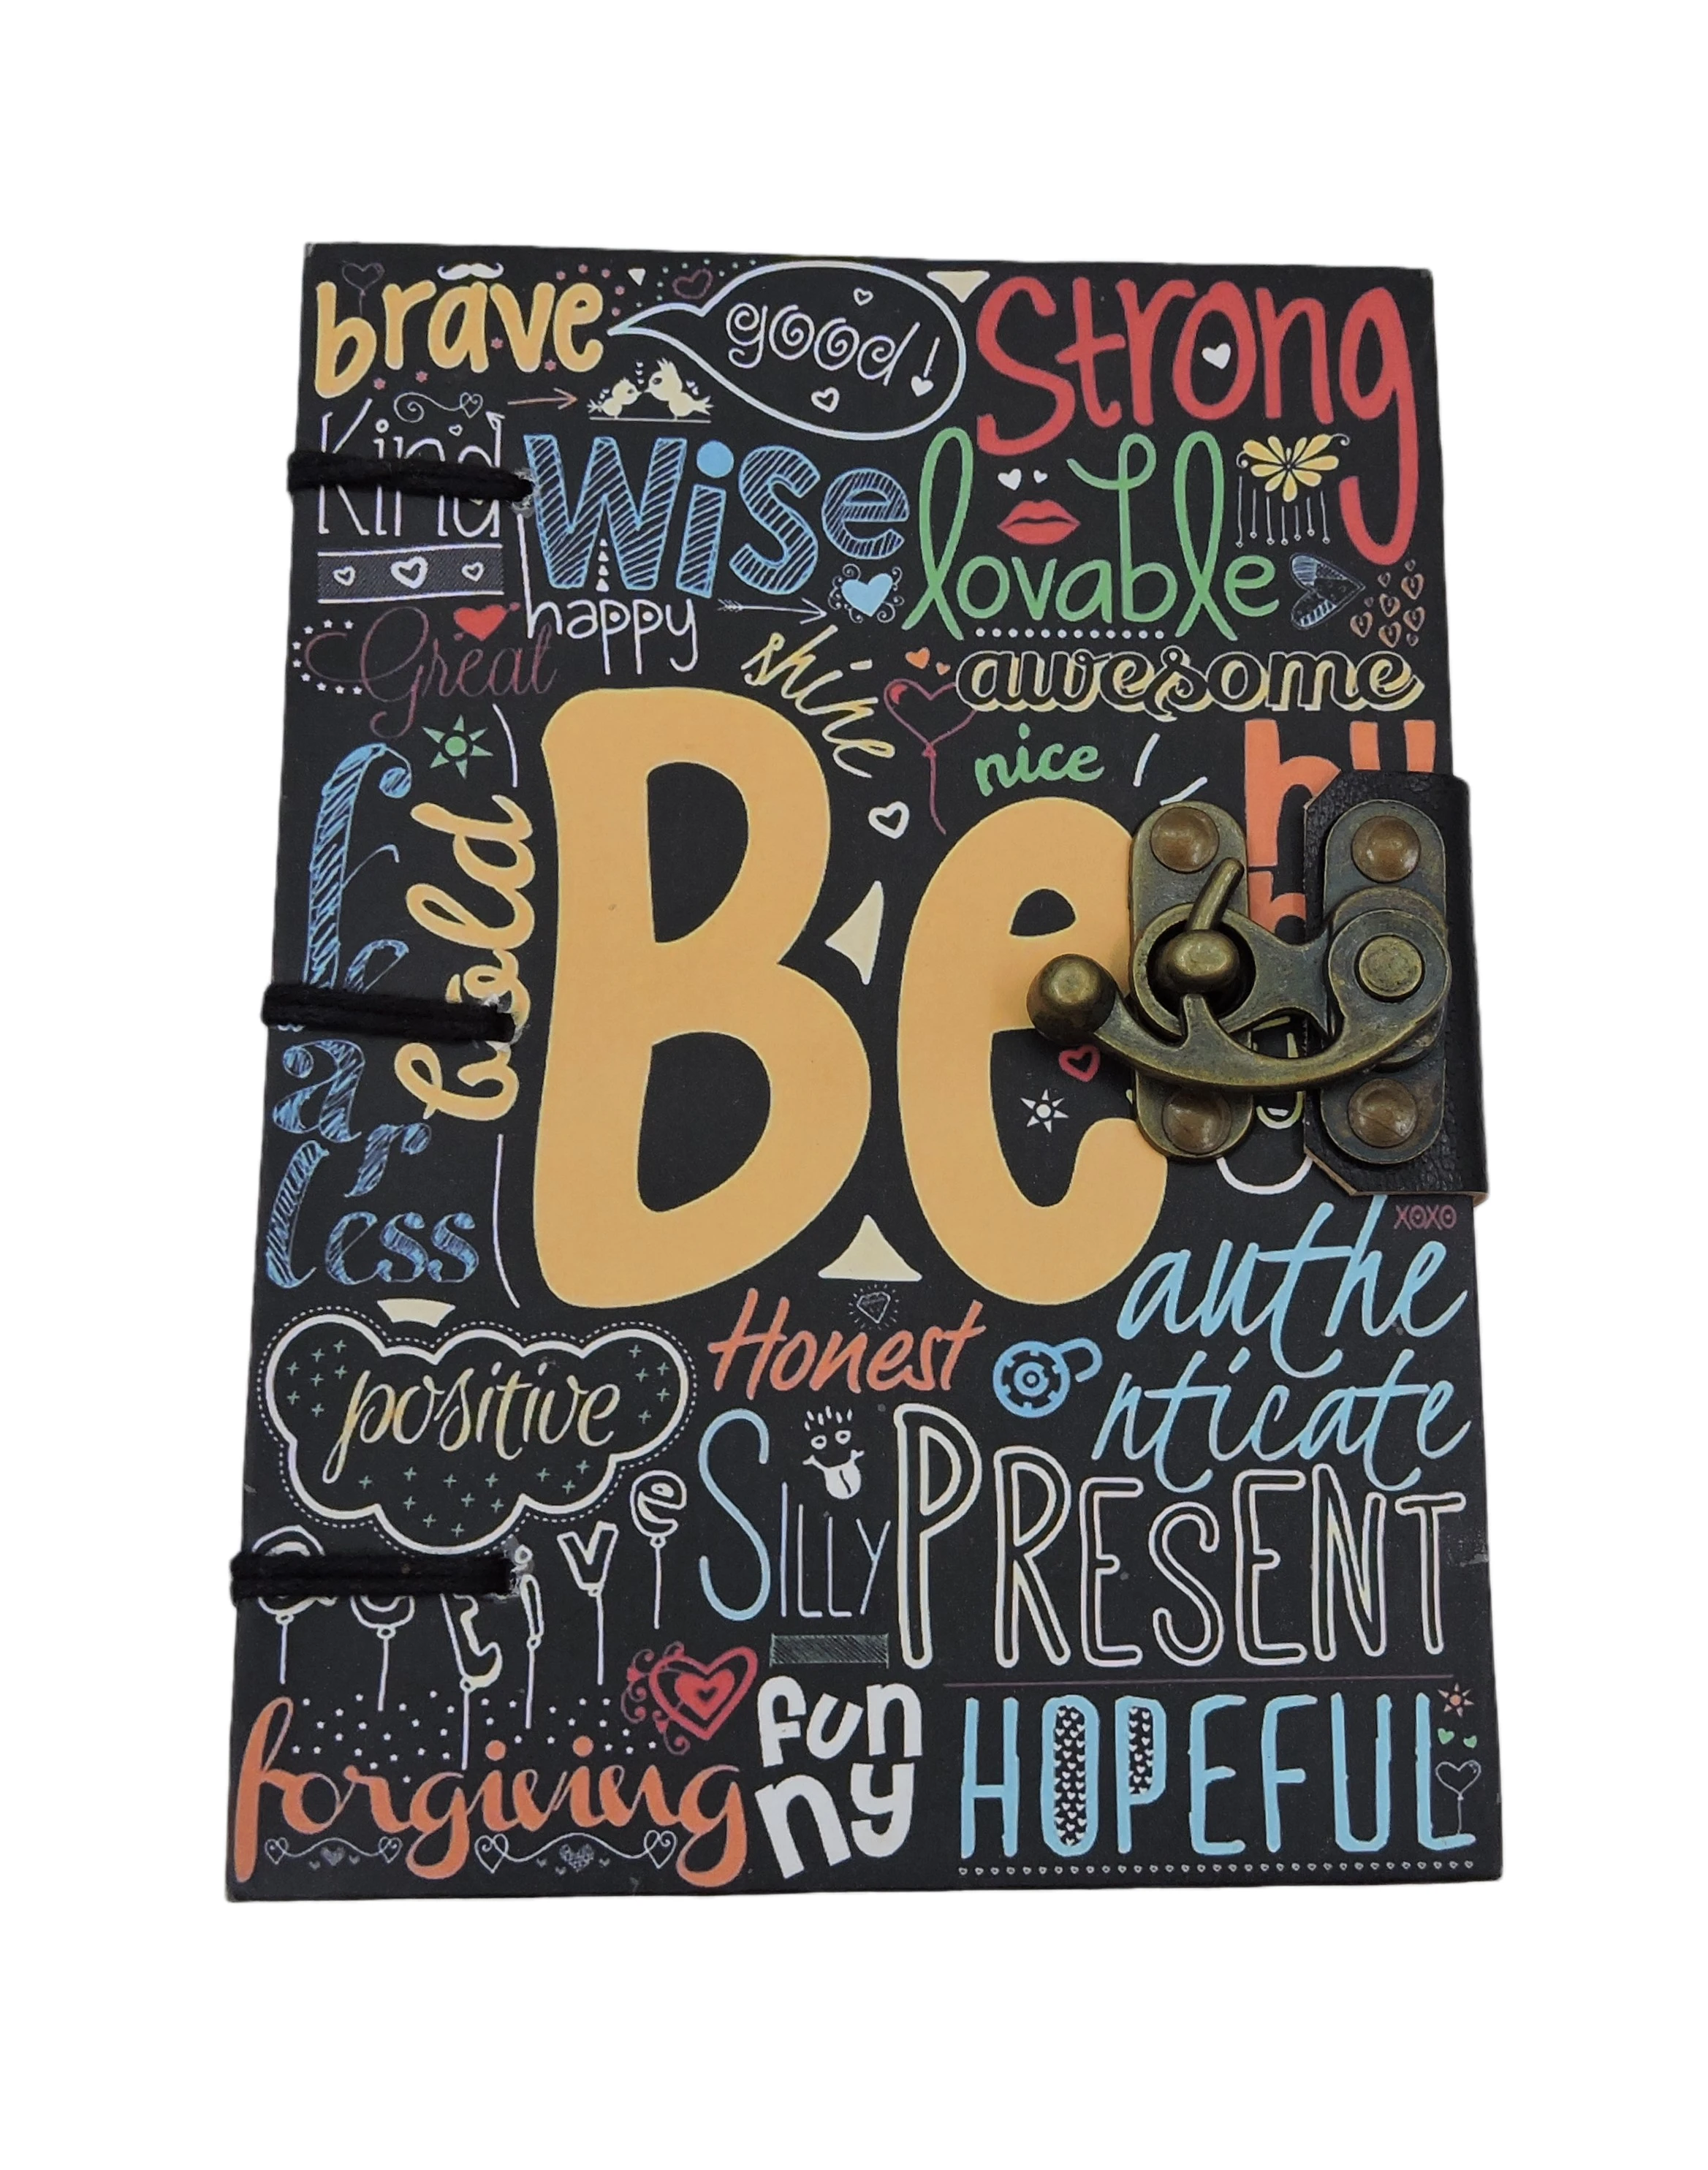 brave
good!
Strong
Kind
Wise
lovable
happy
Great
shine
awesome
nice
fearless
bold
Be
XOXO
authe
nticate
Honest
positive
Silly
PRESENT
forgiving
fun
ny
HOPEFUL